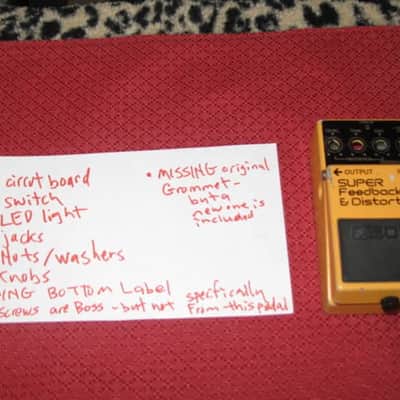 circut board
switch
LED light
jacks
Nuts/washers
Knobs
ING BOTTOM Label
screws are Boss - but not specfically
From this pedal
• MISSING original
Grommet -
but a
new one is
included
OUTPUT
SUPER
Feedback
& Distort
BOSS